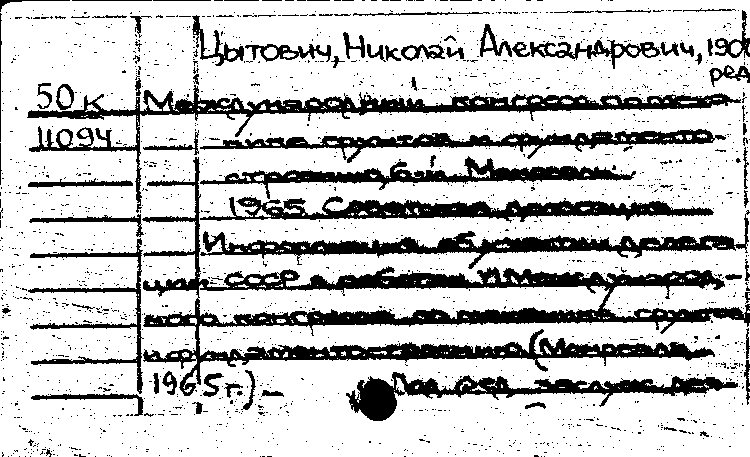 Цытович, Николай Александрович, 1900
ред
50 к Международный конгресс по меха-
11094 нике грунтов и фундаменто-
строению, 6-й. Монреаль.
1965. Советская делегация.
Информация об участии делега-
ции СССР в работе VI Международ-
ного конгресса по механике грунтов
и фундаментостроению (Монреаль,
1965 г.) –
Под ред. заслуж. дея-